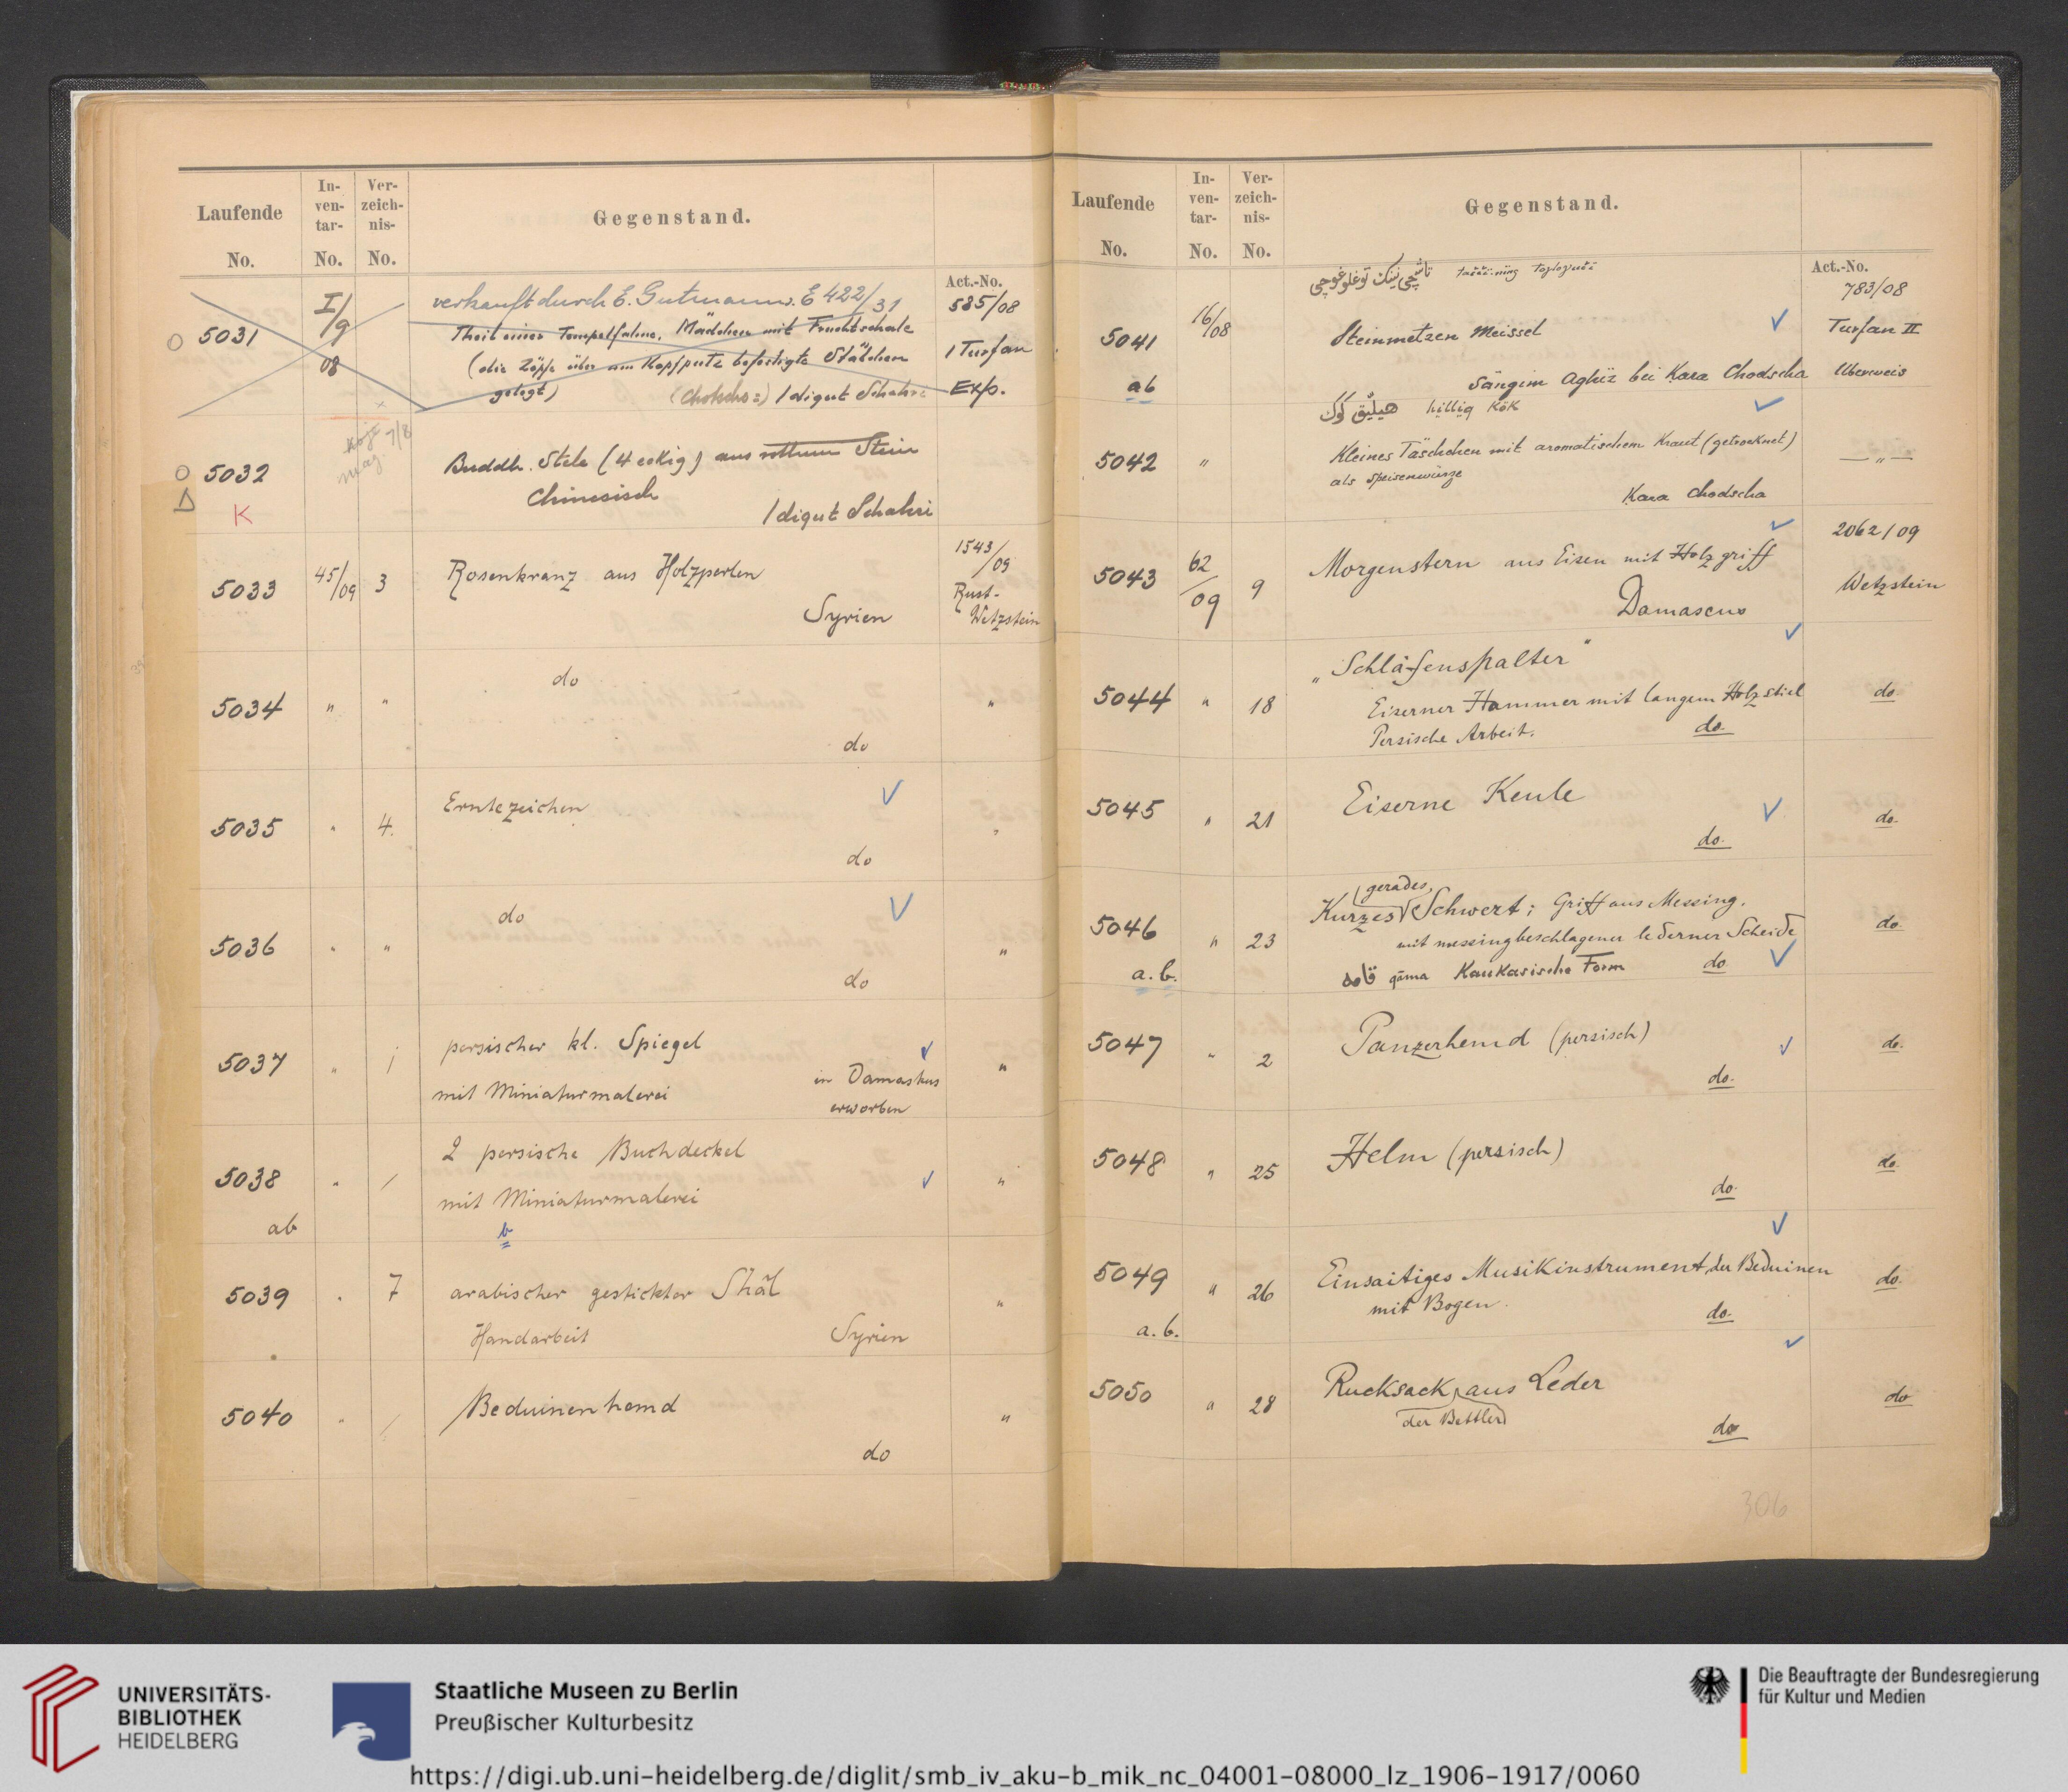 Laufende No.
In-ven-tar- No.
Ver-zeich-nis- No.
Gegenstand.
Act.-No.
verkauft durch E. Gutmann. E 422/31
5031
I/9 08
Theil einer Tempelfahne. Mädchen mit Fruchtschale
(die Zöpfe über am Kopfputz befestigte Stäbchen
gelegt)
Idigut Schahri
585/08
I Turfan
Exp.
5032
K
7/8
Buddh. Stele (4 eckig) aus rothem Stein
Chinesisch
Idigut Schahri
5033
45/09
3
Rosenkranz aus Holzperlen
Syrien
1543/09
Rust-
Wetzstein
5034
"
"
do
do
"
5035
"
4.
Erntezeichen
do
"
5036
"
"
do
do
"
5037
"
1
persischer kl. Spiegel
mit Miniaturmalerei
in Damaskus
erworben
"
5038
ab
"
2 persische Buchdeckel
mit Miniaturmalerei
b
"
5039
"
7
arabischer gestickter Shâl
Handarbeit
Syrien
"
5040
"
Beduinenhemd
do
"
Laufende No.
In-ven-tar- No.
Ver-zeich-nis- No.
Gegenstand.
Act.-No.
5041
ab
16/08
Steinmetzen Meissel
Sängim Aghïz bei Kara Chodscha
783/08
Turfan II
Überweis
هیلیق كوك hillig Kök
5042
"
Kleines Täschchen mit aromatischem Kraut (getrocknet)
als Speisenwürze
Kara Chodscha
— " —
5043
62/09
9
Morgenstern aus Eisen mit Holzgriff
Damascus
2062/09
Wetzstein
5044
"
18
"Schläfenspalter"
Eiserner Hammer mit langem Holzstiel
Persische Arbeit.
do.
do
5045
"
21
Eiserne Keule
do.
do.
5046
a.b.
"
23
gerades,
Kurzes Schwert; Griff aus Messing.
mit messingbeschlagener lederner Scheide
قامه qāma Kaukasische Form
do
do.
5047
"
2
Panzerhemd (persisch)
do.
do.
5048
"
25
Helm (persisch)
do.
do.
5049
a.b.
"
26
Einsaitiges Musikinstrument der Beduinen
mit Bogen.
do.
do.
5050
"
28
Rucksack aus Leder
der Bettler
do
do
306
UNIVERSITÄTS-
BIBLIOTHEK
HEIDELBERG
Staatliche Museen zu Berlin
Preußischer Kulturbesitz
Die Beauftragte der Bundesregierung
für Kultur und Medien
https://digi.ub.uni-heidelberg.de/diglit/smb_iv_aku-b_mik_nc_04001-08000_lz_1906-1917/0060